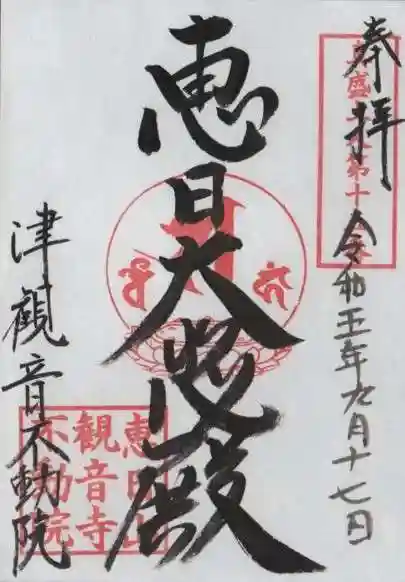 奉拝
令和五年九月十七日
恵日大悲殿
津観音不動院
恵日山
観音寺
不動院